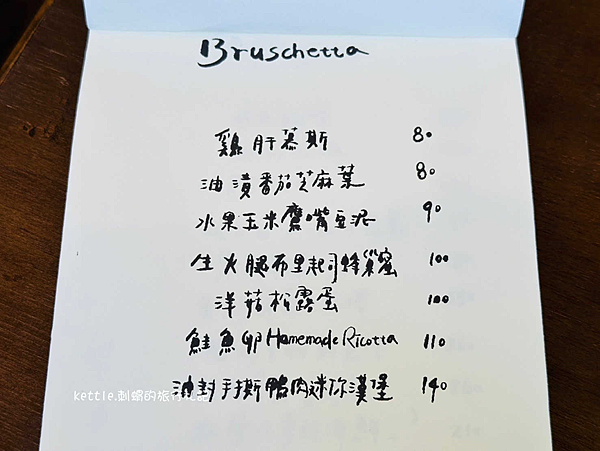 Bruschetta
雞肝慕斯 80
油漬番茄芝麻葉 80
水果玉米鷹嘴豆泥 90
生火腿布里起司蜂巢蜜 100
洋菇松露蛋 100
鮭魚卵 Homemade Ricotta 110
油封手撕鴨肉迷你漢堡 140
kettle.刺蝟的旅行札記